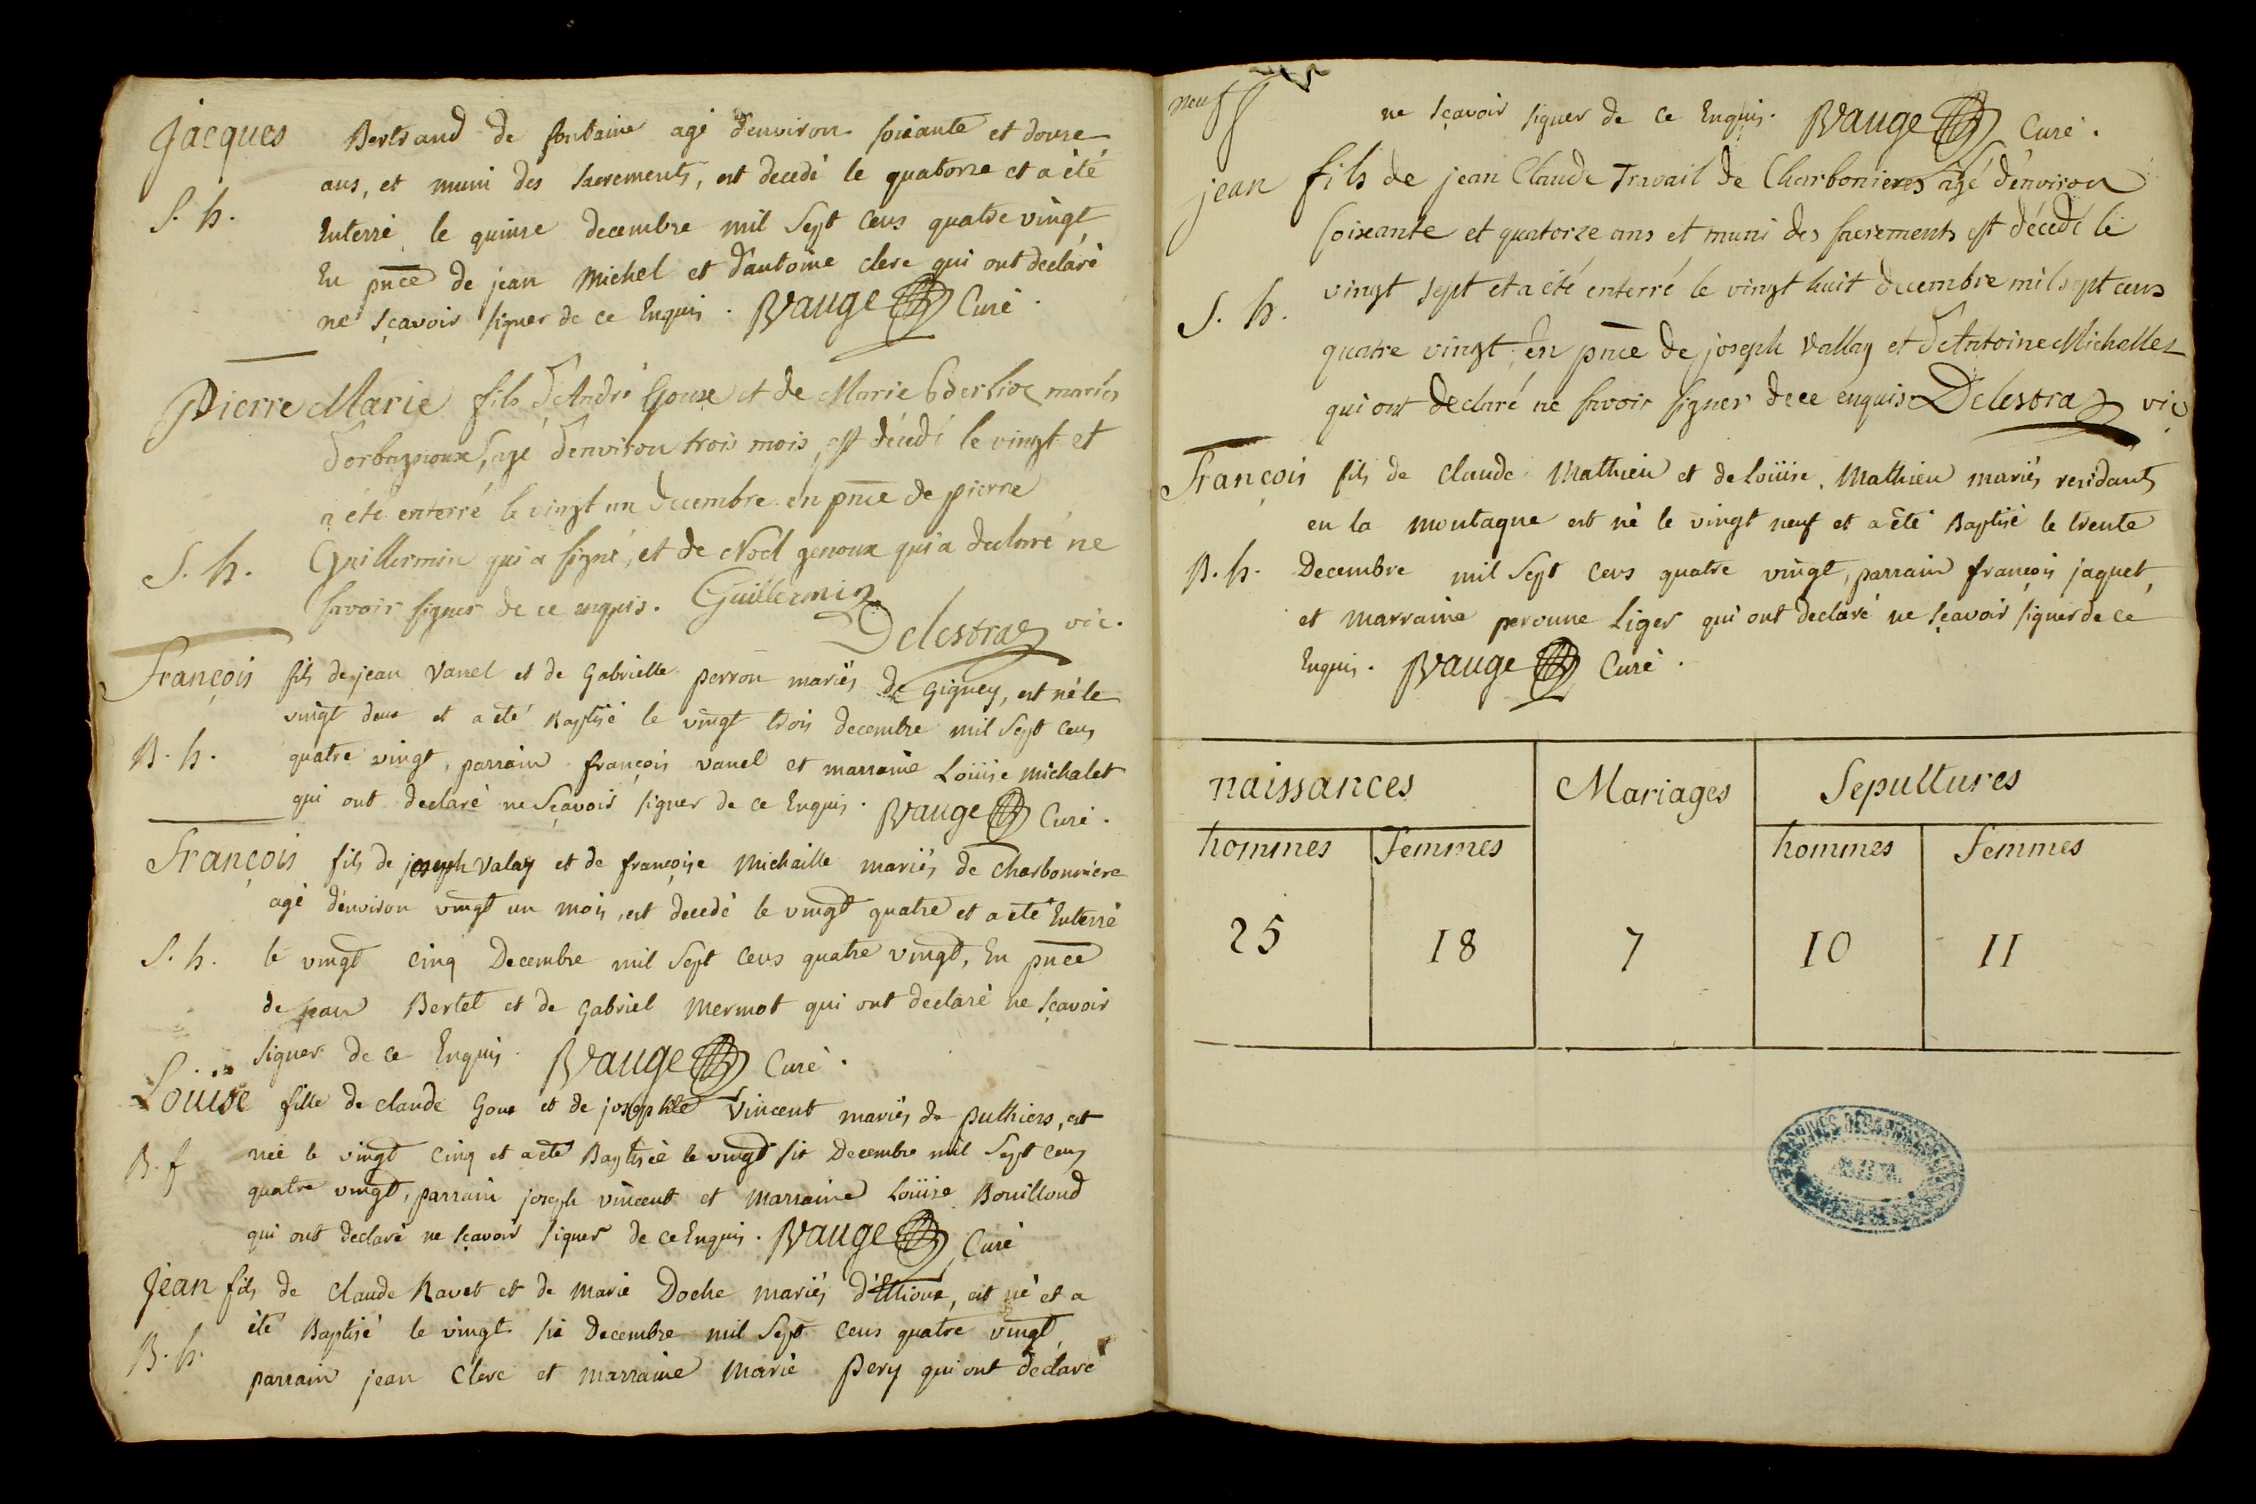 Jacques Bertrand de fontaine agé d'environ soixante et douze
ans, et muni des sacrements, est decedé le quatorze et a été
S. h.
Enterré le quinze decembre mil Sept Cens quatre vingt
En pnce de jean Michel et d'antoine clerc qui ont declaré
ne sçavoir signer de ce Enquis. BVauge Curé.
Pierre Marie fils d'André Goux et de Marie mariés
d'orbagnoux, agé d'environ trois mois, est décédé le vingt et
a été enterré le vingt un decembre en pnce de pierre
S. h.
Guillermin qui a signé, et de Noel genoux qui a declaré ne
savoir signer de ce enquis. Guillermin
Delestraz vic.
François fils de jean Vanel et de Gabrielle perron mariés de Gigney, est né le
vingt deux et a été Baptisé le vingt trois decembre mil Sept Cens
B. h.
quatre vingt, parrain françois vanel et marraine Loüise Michalet
qui ont declaré ne sçavoir signer de ce Enquis. BVauge Curé.
François fils de joseph Valay et de françoise Michaille mariés de Charbonniere
agé d'environ vingt un mois, est decedé le vingt quatre et a été Enterré
S. h.
le vingt cinq Decembre mil Sept Cens quatre vingt, En pnce
de jean Bertet et de Gabriel Mermot qui ont declaré ne sçavoir
signer de ce Enquis. BVauge Curé.
Loüise fille de claude Goux et de josephte Vincent mariés de puthiers, est
B. f
née le vingt cinq et a été Baptisée le vingt six Decembre mil Sept Cens
quatre vingt, parrain joseph vincent et Marraine Loüise Bouilloud
qui ont declaré ne sçavoir signer de ce Enquis. BVauge Curé
Jean fils de Claude Ravet et de Marie Doche mariés d'Ettioux, est né et a
été Baptisé le vingt six Decembre mil Sept Cens quatre vingt,
B. h.
parrain jean Clerc et marraine Marie Pery qui ont declaré
neuf
ne sçavoir signer de ce Enquis. BVauge Curé.
jean fils de jean Claude Travail de Charbonieres agé d'environ
soixante et quatorze ans et muni des sacrements est décédé le
S. h.
vingt sept et a été enterré le vingt huit decembre mil sept cens
quatre vingt, en pnce de joseph Vallay et d'Antoine Michallet
qui ont declaré ne savoir signer de ce enquis Delestraz vic
François fils de Claude Mathieu et de Loüise Mathieu mariés residants
en la montagne est né le vingt neuf et a été Baptisé le trente
B. h.
Decembre mil Sept Cens quatre vingt, parrain françois jaquet,
et marraine peronne Liger qui ont declaré ne sçavoir signer de ce
Enquis. BVauge Curé.
naissances Mariages Sepultures
hommes femmes hommes femmes
25 18 7 10 11